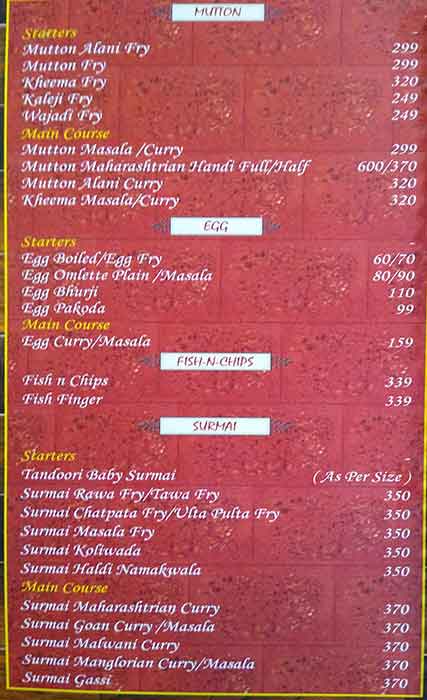 MUTTON
Starters -
Mutton Alani Fry 299
Mutton Fry 299
Kheema Fry 320
Kaleji Fry 249
Wajadi Fry 249
Main Course
Mutton Masala /Curry 299
Mutton Maharashtrian Handi Full/Half 600/370
Mutton Alani Curry 320
Kheema Masala/Curry 320
EGG
Starters -
Egg Boiled/Egg Fry 60/70
Egg Omlette Plain /Masala 80/90
Egg Bhurji 110
Egg Pakoda 99
Main Course
Egg Curry/Masala 159
FISH-N-CHIPS -
Fish n Chips 339
Fish Finger 339
SURMAI
Starters -
Tandoori Baby Surmai ( As Per Size )
Surmai Rawa Fry/Tawa Fry 350
Surmai Chatpata Fry/Ulta Pulta Fry 350
Surmai Masala Fry 350
Surmai Koliwada 350
Surmai Haldi Namakwala 350
Main Course
Surmai Maharashtrian Curry 370
Surmai Goan Curry /Masala 370
Surmai Malwani Curry 370
Surmai Manglorian Curry/Masala 370
Surmai Gassi 370